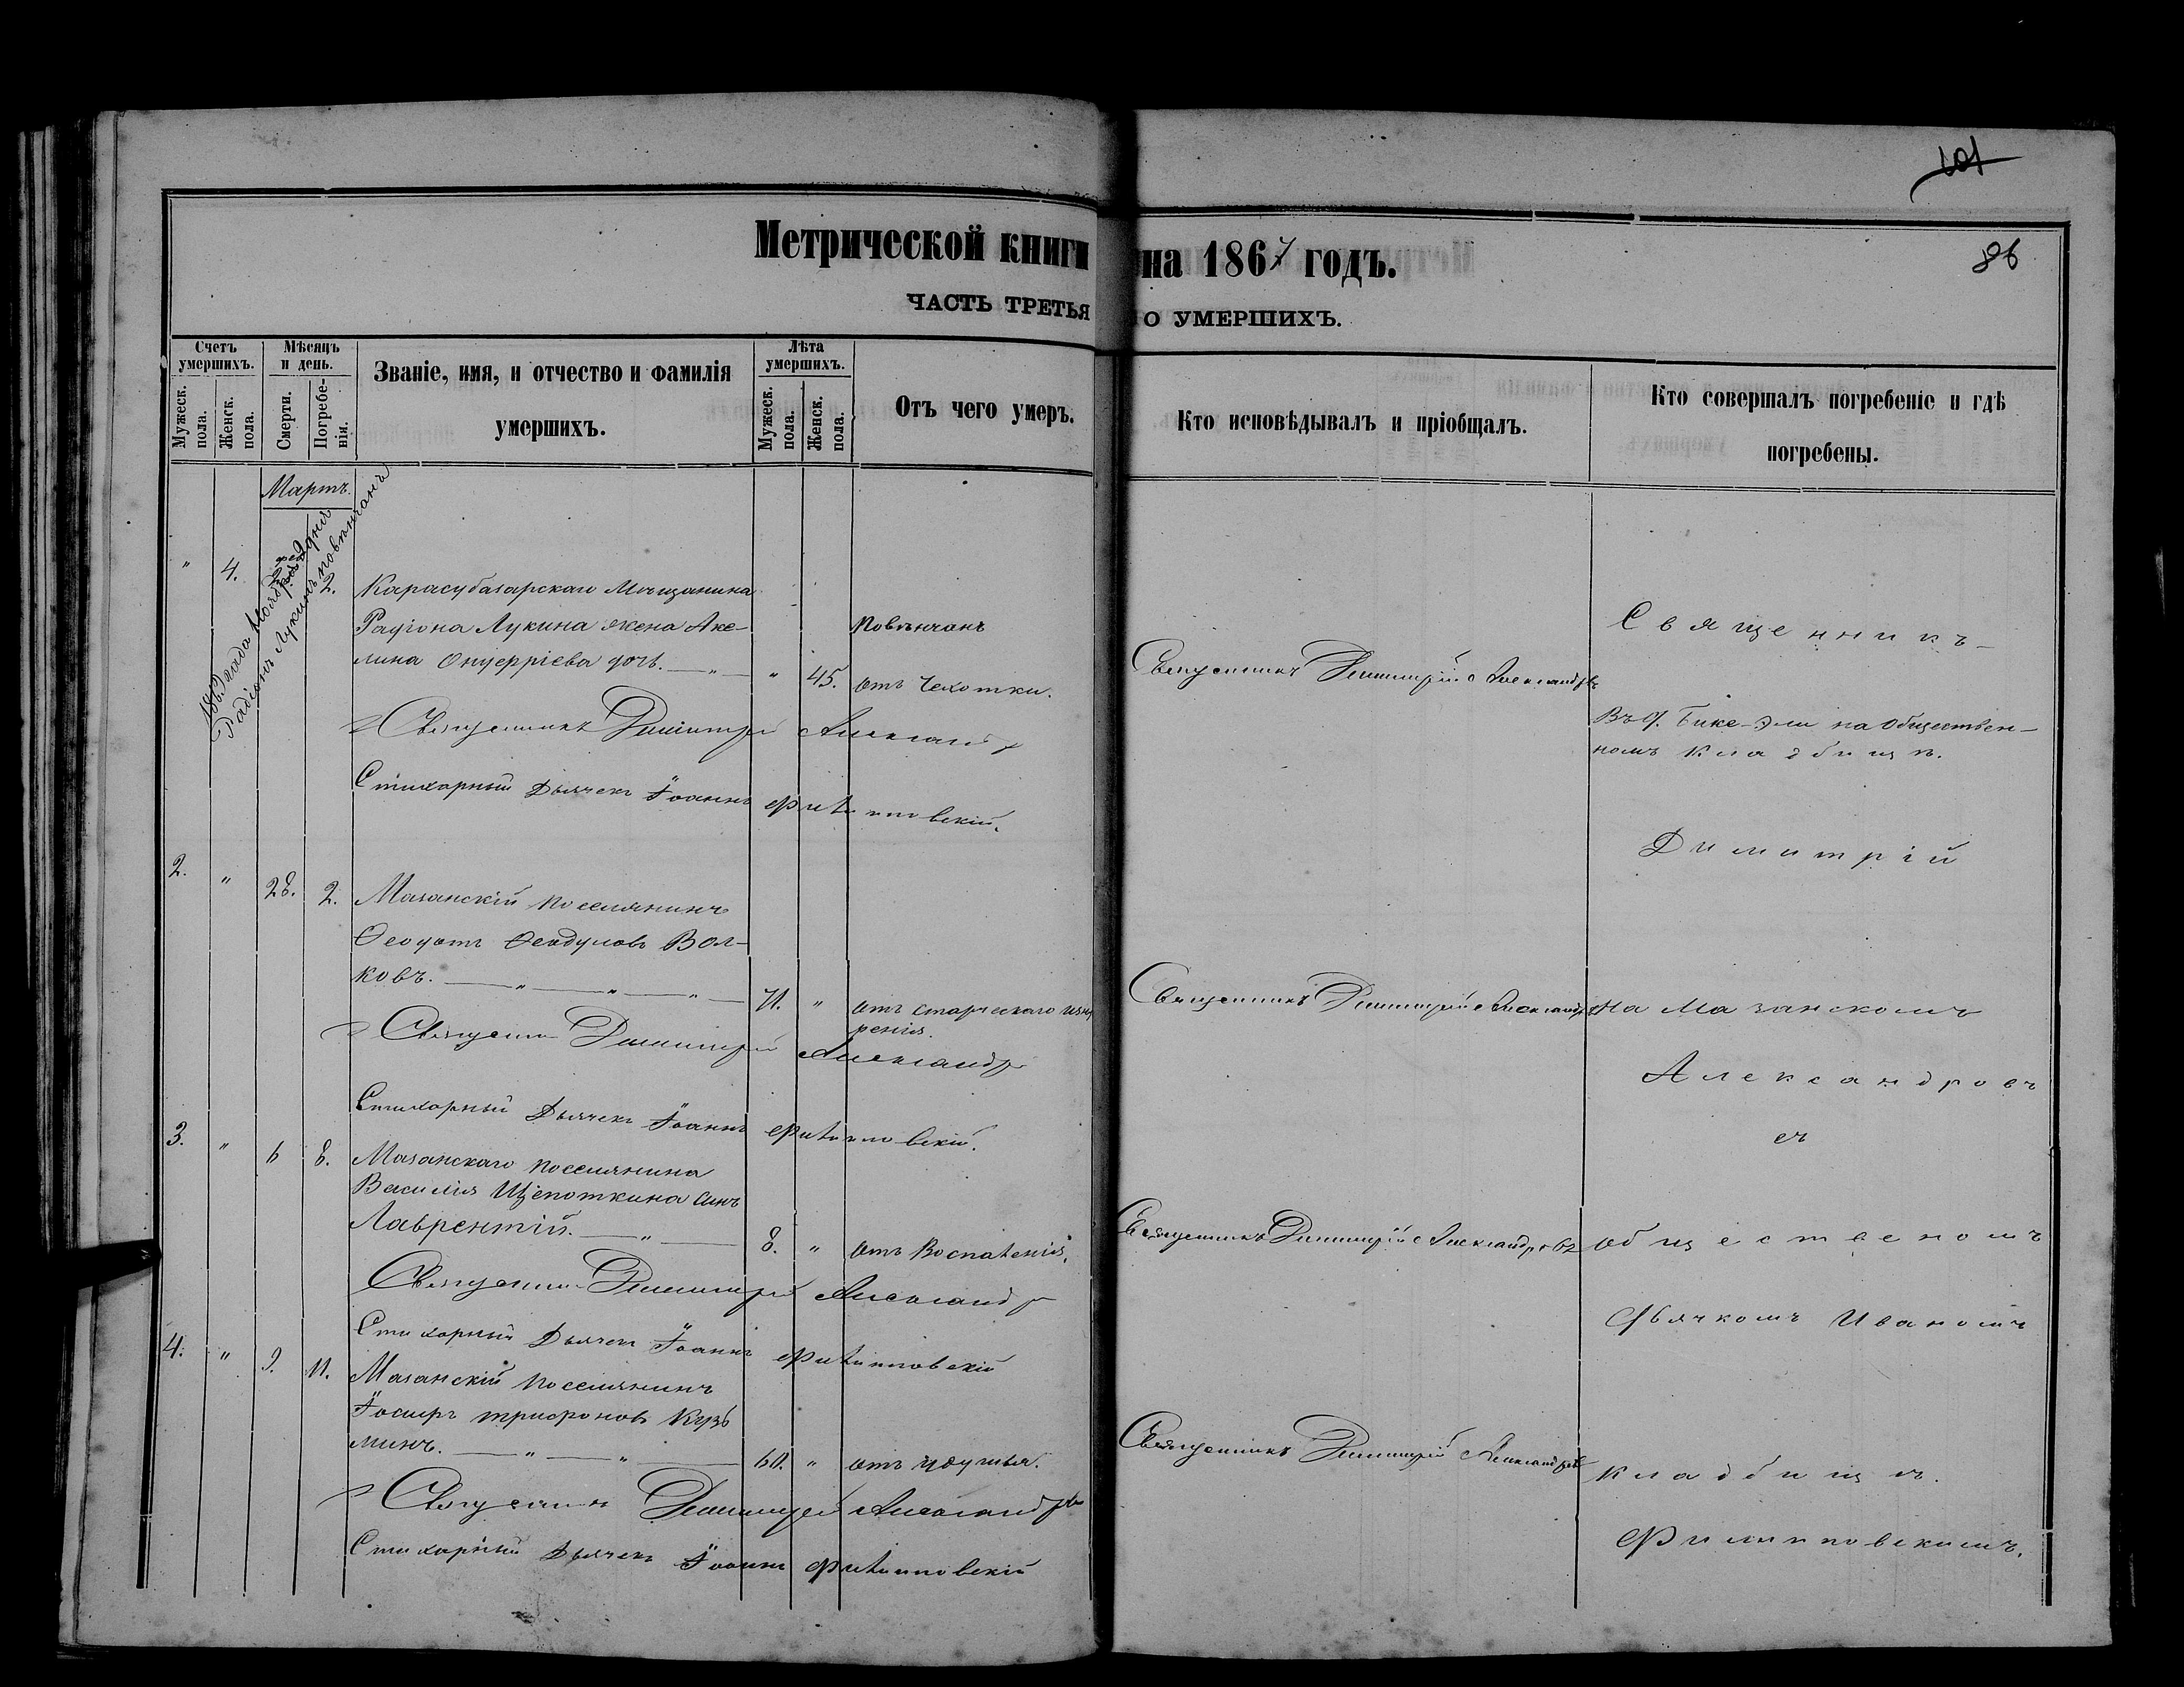 101
86
Метрической книги на 1867 годъ.
ЧАСТЬ ТРЕТЬЯ О УМЕРШИХЪ.
Счетъ умершихъ.
Мужеск. пола.
Женск. пола.
Мѣсяцъ и день.
Смерти.
Погребенія.
Званіе, имя, и отчество и фамилія
умершихъ.
Лѣта умершихъ.
Мужеск. пола.
Женск. пола.
Отъ чего умеръ.
Кто исповѣдывалъ и пріобщалъ.
Кто совершалъ погребеніе и гдѣ
погребены.
Мартъ.
Радіонъ Лукинъ повѣнчанъ
" 4. 2. Карасубазарскаго Мещанина
Радіона Лукина жена Аке-
лина Онуфріева дочь. " " 45. отъ Чехотки.
повѣнчанъ
Священникъ Димитрій Александровъ
Стихарный Дьячекъ Іоаннъ Филипповскій.
Священникъ Димитрій Александровъ
Священникъ
Въ д. Бике-Эли на Обществен-
номъ кладбищѣ.
Димитрій
2. " 28. 2. Мазанскій поселянинъ
Ѳеодотъ Ѳеодуловъ Вол-
ковъ. " " " 71. " отъ старческаго изну
ренія.
Священникъ Димитрій Александровъ
Стихарный Дьячекъ Іоаннъ Филипповскій.
Священникъ Димитрій Александровъ
На Мазанскомъ
Александровъ
съ
3. " 6 8. Мазанскаго поселянина
Василія Щепоткина сынъ
Лаврентій. " 8. " отъ Воспаленія.
Священникъ Димитрій Александровъ
Стихарный Дьячекъ Іоаннъ Филипповскій
Священникъ Димитрій Александровъ
общественомъ
Дьячкомъ Иваномъ
4. " 9. 11. Мазанскій поселянинъ
Іосифъ Трифоновъ Кузь
минъ. " " 60. " отъ удушья.
Священникъ Димитрій Александровъ
Стихарный Дьячекъ Іоаннъ Филипповскій
Священникъ Димитрій Александровъ
кладбищѣ.
Филипповскимъ.